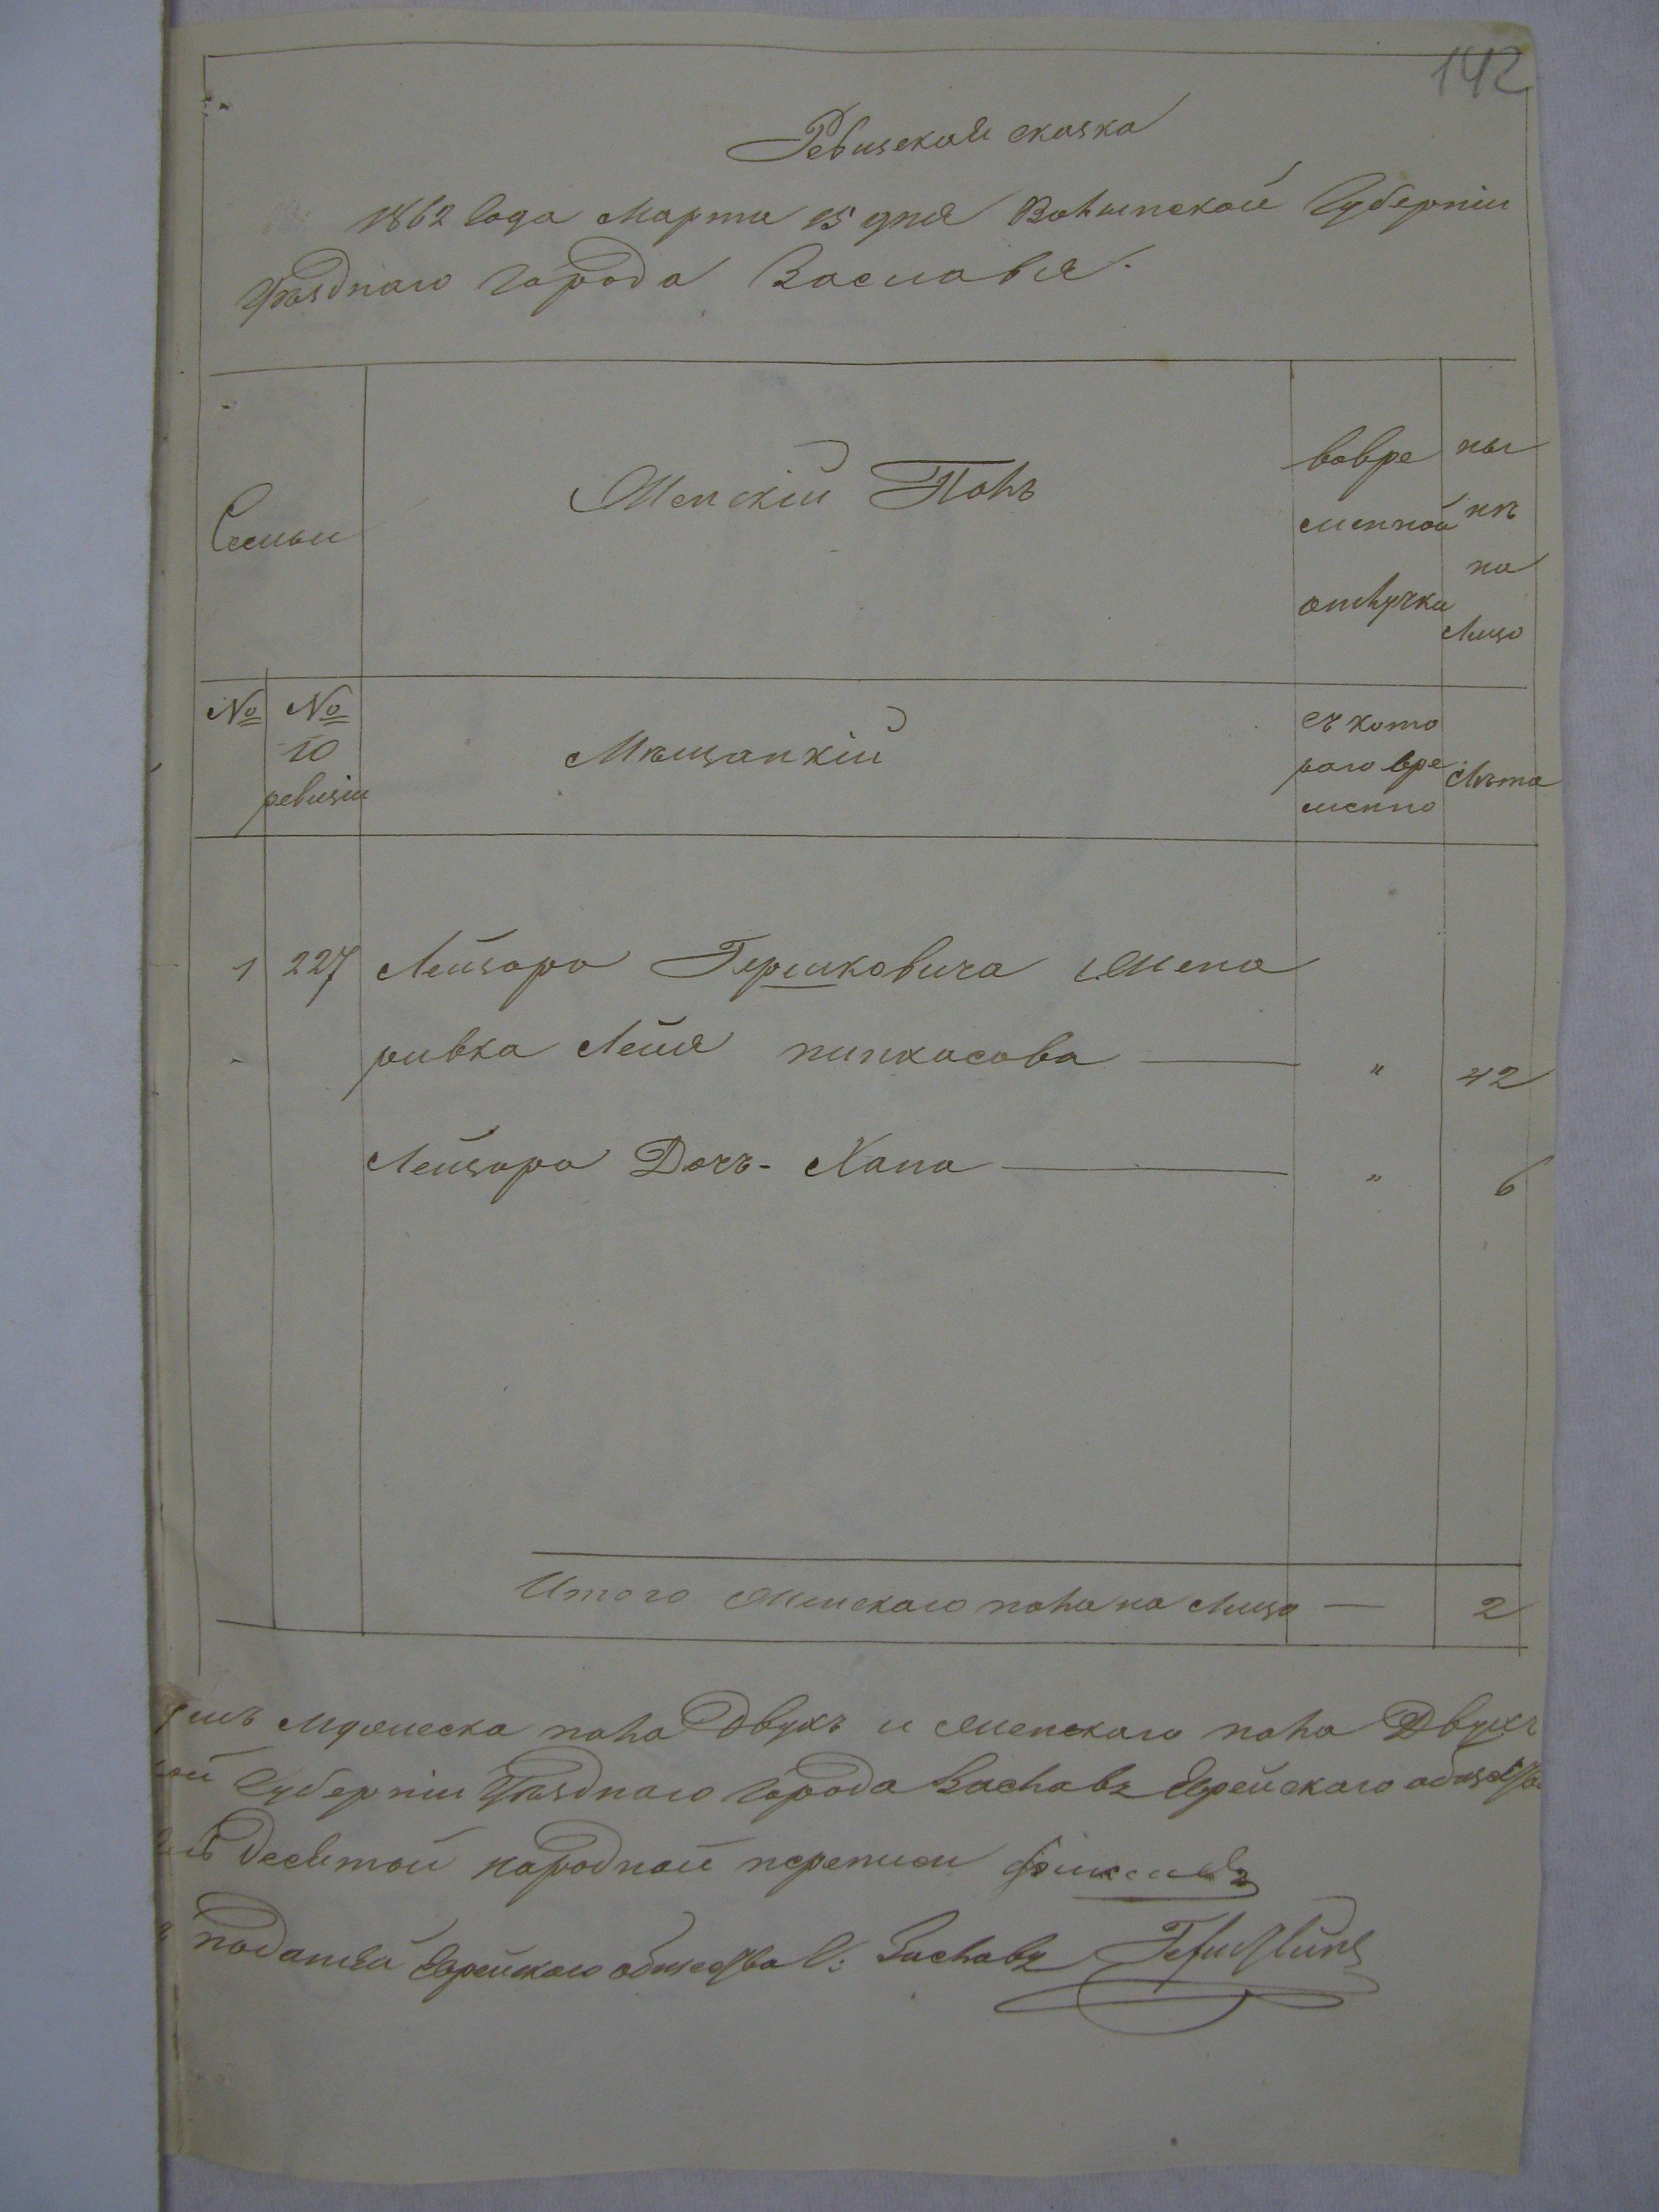 142
Ревизская сказка
1862 Года Марта 15 дня Волынской Губерніи
Уѣзднаго города Заславля.
Семьи
Женскій Полъ
вовре
менной
отлучки
ны
нѣ
на
Лицо
№
№
10
ревизіи
Мѣщанкій
съ кото
раго вре
менно
Лѣта
1 227 Лейзора Гершковича Жена
ривка Лейя пинкасова — " 42
Лейзора Дочъ - Хана — " 6
Итого Женскаго пола на Лицо — 2
мужеска пола Двухъ и женскаго пола Двухъ
Губерніи Уѣзднаго Города Заславля Еврейскаго общества
десятой народной переписи
податей Еврейскаго общества Г: Заславля